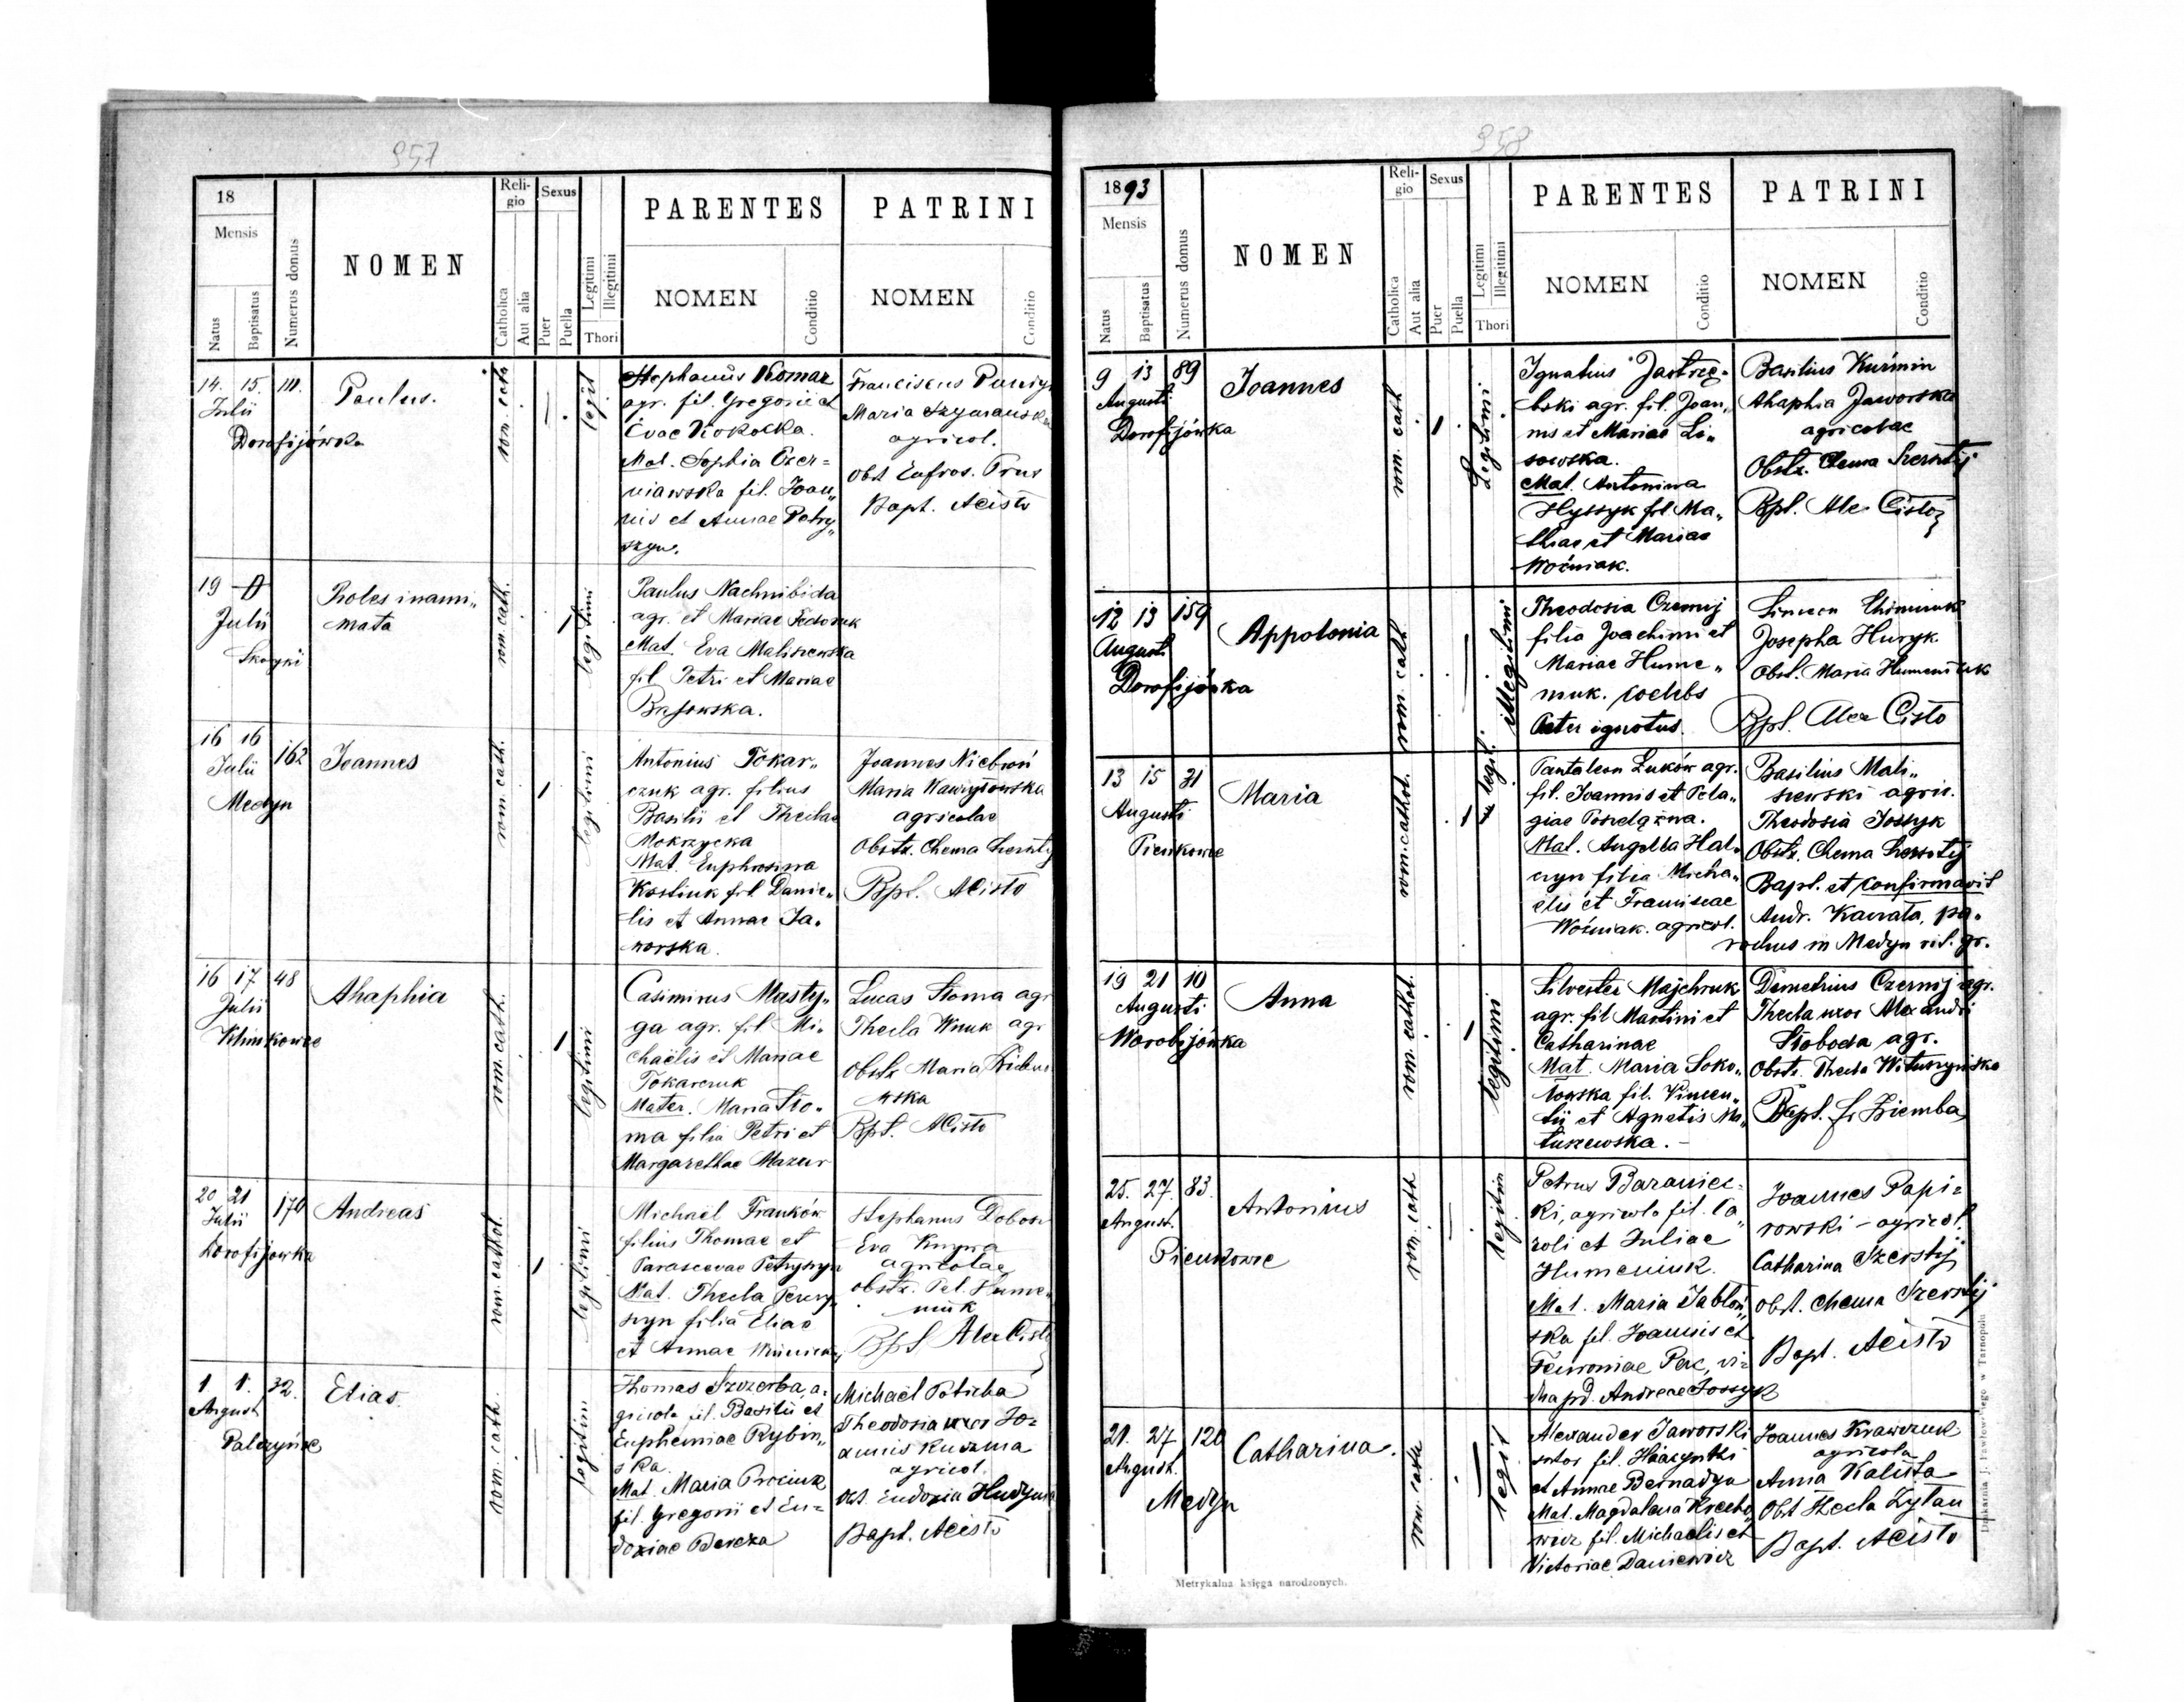 957
18
Mensis
Natus
Baptisatus
Numerus domus
NOMEN
Reli-
gio
Catholica
Aut alia
Sexus
Puer
Puella
Legitimi
Illegitimi
Thori
PARENTES
NOMEN
Conditio
PATRINI
NOMEN
Conditio
14. 15. 111.
Julii
Dorofijówka
Paulus.
rom. cath
legit
Stephanus Komar
agr. fil. Gregorii et
Evae Kokocka.
Mat. Sophia Czer=
niawska fil. Joan„
nis et Annae Petry„
szyn.
Franciscus
Maria Szymanska
agricol.
Obst Eufros. Prus
Bapt. ACisto
19
Julii
Skoryki
Proles inani„
mata
rom. cath.
legitimi
Paulus Nachnibida
agr. et Mariae Fedoruk
Mat. Eva Maliszewska
fil Petri et Mariae
16 16 162
Julii
Medyn
Joannes
rom. cath.
legitimi
Antonius Tokar„
czuk agr. filius
Basilii et Theclae
Mokrzycka
Mat. Euphrosina
Kostiuk fil Danie„
lis et Annae Ja„
worska.
Joannes
Maria
agricolae
Obstr. Chema
Bpt. ACisto
16 17 48
Julii
Klimkowce
Ahaphia
rom. cath.
legitimi
Casimirus Masty„
ga agr. fil Mi„
chaëlis et Mariae
Tokarczuk
Mater. Maria Sło„
ma filia Petri et
Margarethae Mazur
Lucas Słoma agr
Thecla Wnuk agr
Obstr Maria
wska
Bpt. ACisto
20 21 170
Julii
Dorofijowka
Andreas
rom. cathol.
legitimi
Michaël Franków
filius Thomae et
Parascevae Petryszyn
Mat. Thecla
szyn filia Eliae
et Annae
Stephanus Dobosz
Eva
agricolae
Obstr. Pel. Hume„
niuk
Bpt Alex Cisto
1. 1. 32.
August
Palczyńce
Elias
rom. cath.
legitim
Thomas Szczerba, a=
gricola fil. Basilii et
Euphemiae Rybin„
ska.
Mat. Maria Prociuk
fil. Gregorii et Eu=
doxiae Bereza
Michaël Poticha
Theodosia uxor Jo=
annis Kuzma
agricol.
Obst. Eudoxia Hudyma
Bapt. ACisto
958
1893
Mensis
Natus
Baptisatus
Numerus domus
NOMEN
Reli-
gio
Catholica
Aut alia
Sexus
Puer
Puella
Legitimi
Illegitimi
Thori
PARENTES
NOMEN
Conditio
PATRINI
NOMEN
Conditio
9 13 89
Augusti
Dorofijówka
Joannes
rom. cath
Legitimi
Ignatius Jastrzę„
bski agr. fil. Joan„
nis et Mariae Li„
sowska.
Mat. Antonina
Hyssyk fil Ma„
thiae et Mariae
Woźniak.
Basilius Kuźmin
Ahaphia Jaworska
agricolae
Obstr. Chema Szerstij
Bpt. Alex Cisto
12 13 159
Augusti
Dorofijówka
Appolonia
rom. cath
illegitimi
Theodosia Czernij
filia Joachimi et
Mariae Hume„
niuk. coelebs
Pater ignotus.
Simeon
Josepha Huryk
Obst. Maria Humeniuk
Bpt. Alex Cisto
13 15 31
Augusti
Pieńkowce
Maria
rom. cathol.
legit.
Pantaleon Łuków agr.
fil. Joannis et Pela„
giae
Mat. Angella Hal„
czyn filia Micha„
elis et Franciscae
Woźniak. agricol.
Basilius Mali„
szewski agric.
Theodosia Jossyk
Obstr. Chema Szerstij
Bapt. et confirmavit
Andr. pa„
rochus in Medyn rit. gr.
19 21 10
Augusti
Worobijówka
Anna
rom. cathol.
legitimi
Silvester Majchruk
agr. fil Martini et
Catharinae
Mat. Maria Soko„
łowska fil. Vincen„
tii et Agnetis Ma„
tuszewska. –
Demetrius Czernij agr.
Thecla uxor Alexandri
Słoboda agr.
Obstr. Thecla Wituszyńska
Bapt. fr Ziemba
25. 27. 83.
August.
Pieńkowce
Antonius
rom. cath
legitim
Petrus Baraniec=
ki, agricola fil. Ca„
roli et Juliae
Humeniuk.
Mat. Maria Jabłoń„
ska fil. Joannis et
Fewroniae Pac, vi=
dua pd. Andreae Jossyk
Joannes Papi=
rowski – agricol.
Catharina Szerstij
obst. Chema Szerstij
Bapt. ACisto
21. 27 120
August.
Medyn
Catharina.
rom. cath
legit
Alexander Jaworski
sutor fil. Hiacynthi
et Annae Bernadyn
Mat. Magdalena
wicz fil. Michaelis et
Victoriae Daniewicz
Joannes Krawczuk
agricola
Anna Kalista
Obst Thecla Żyłan
Bapt. ACisto
Metrykalna księga narodzonych.
Drukarnia J. Pawłowskiego w Tarnopolu